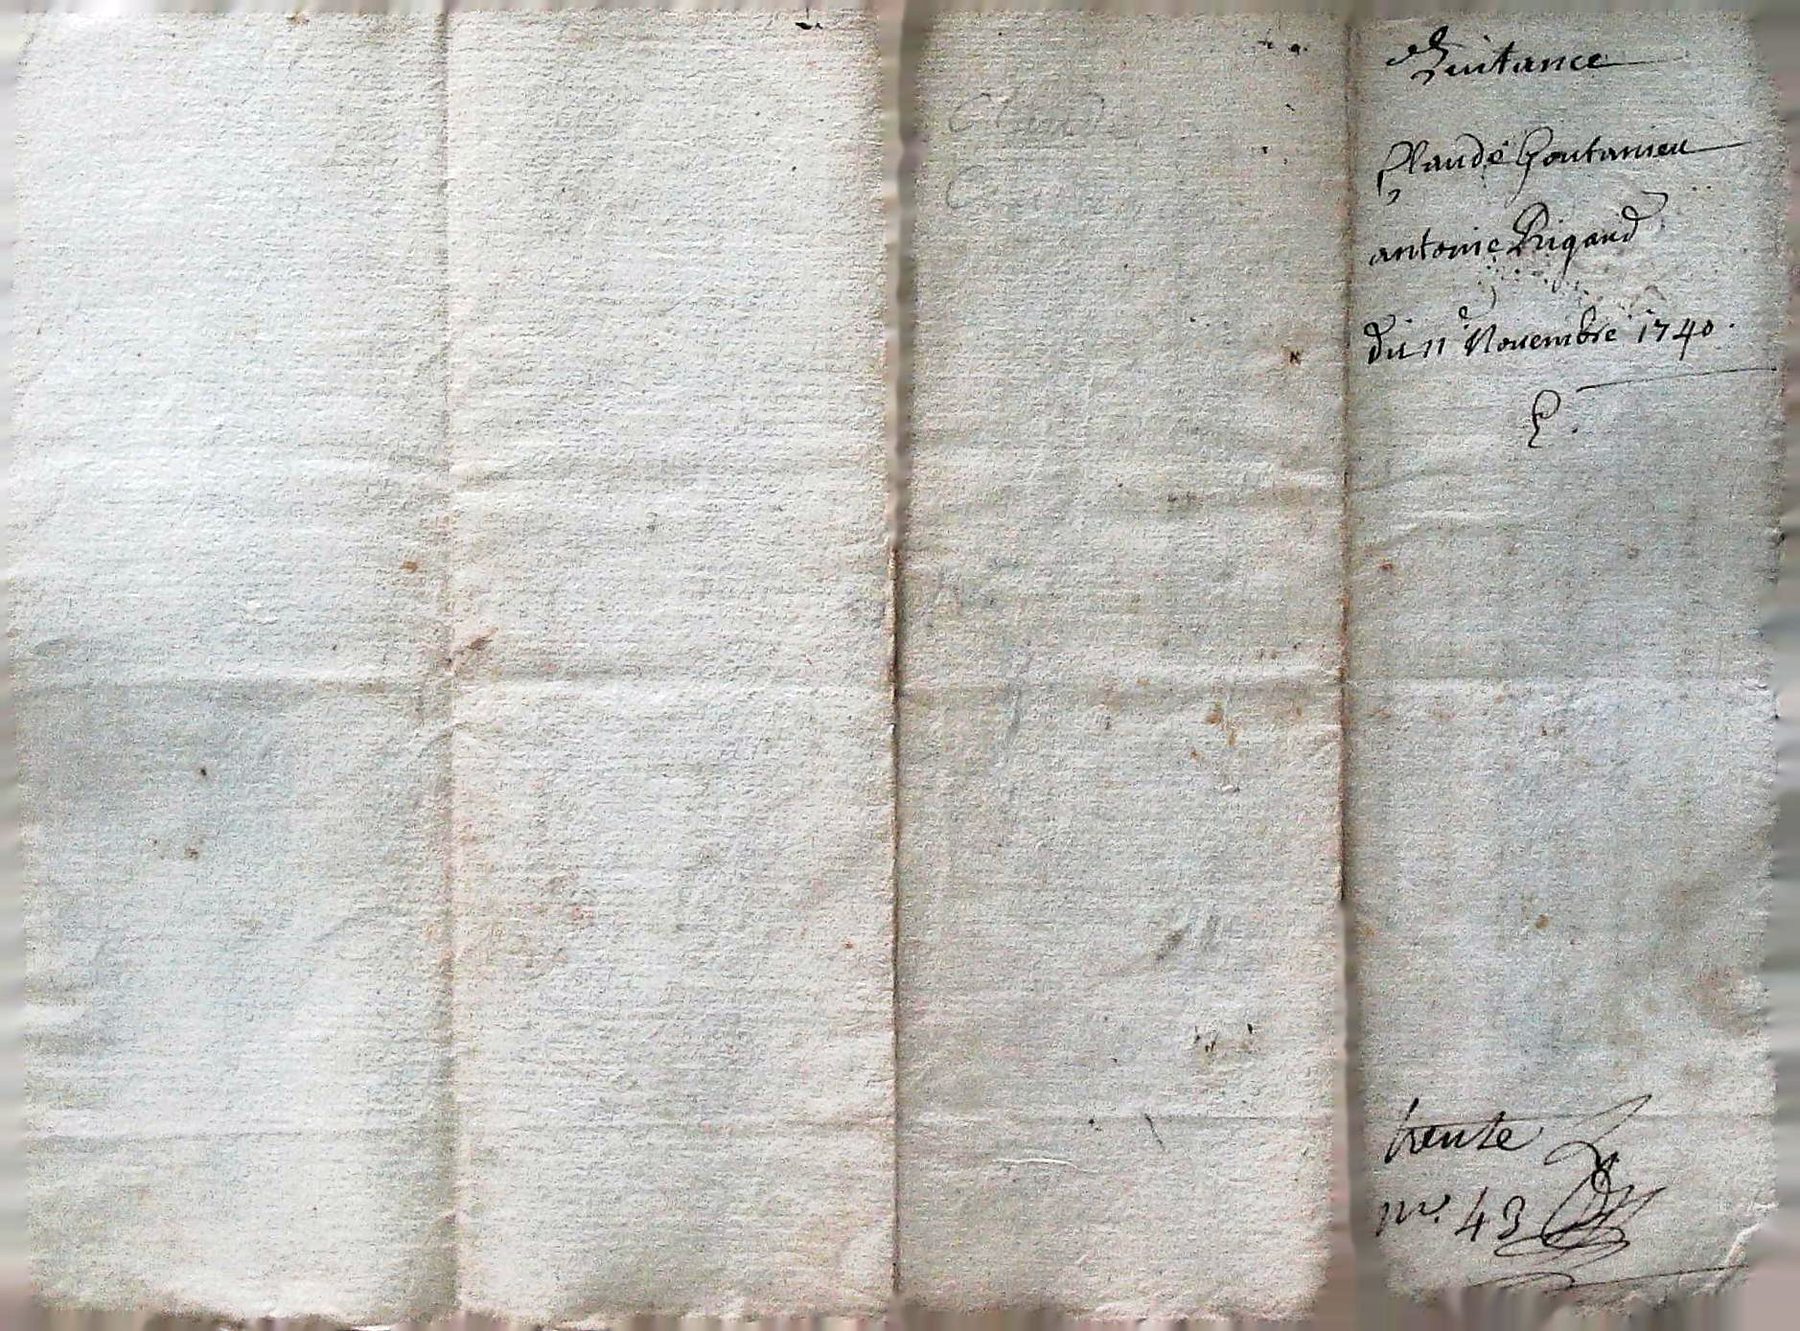 Quitance
Claude Goutanieu
antoine Rigaud
du 11e Novembre 1740.
trente
no. 43